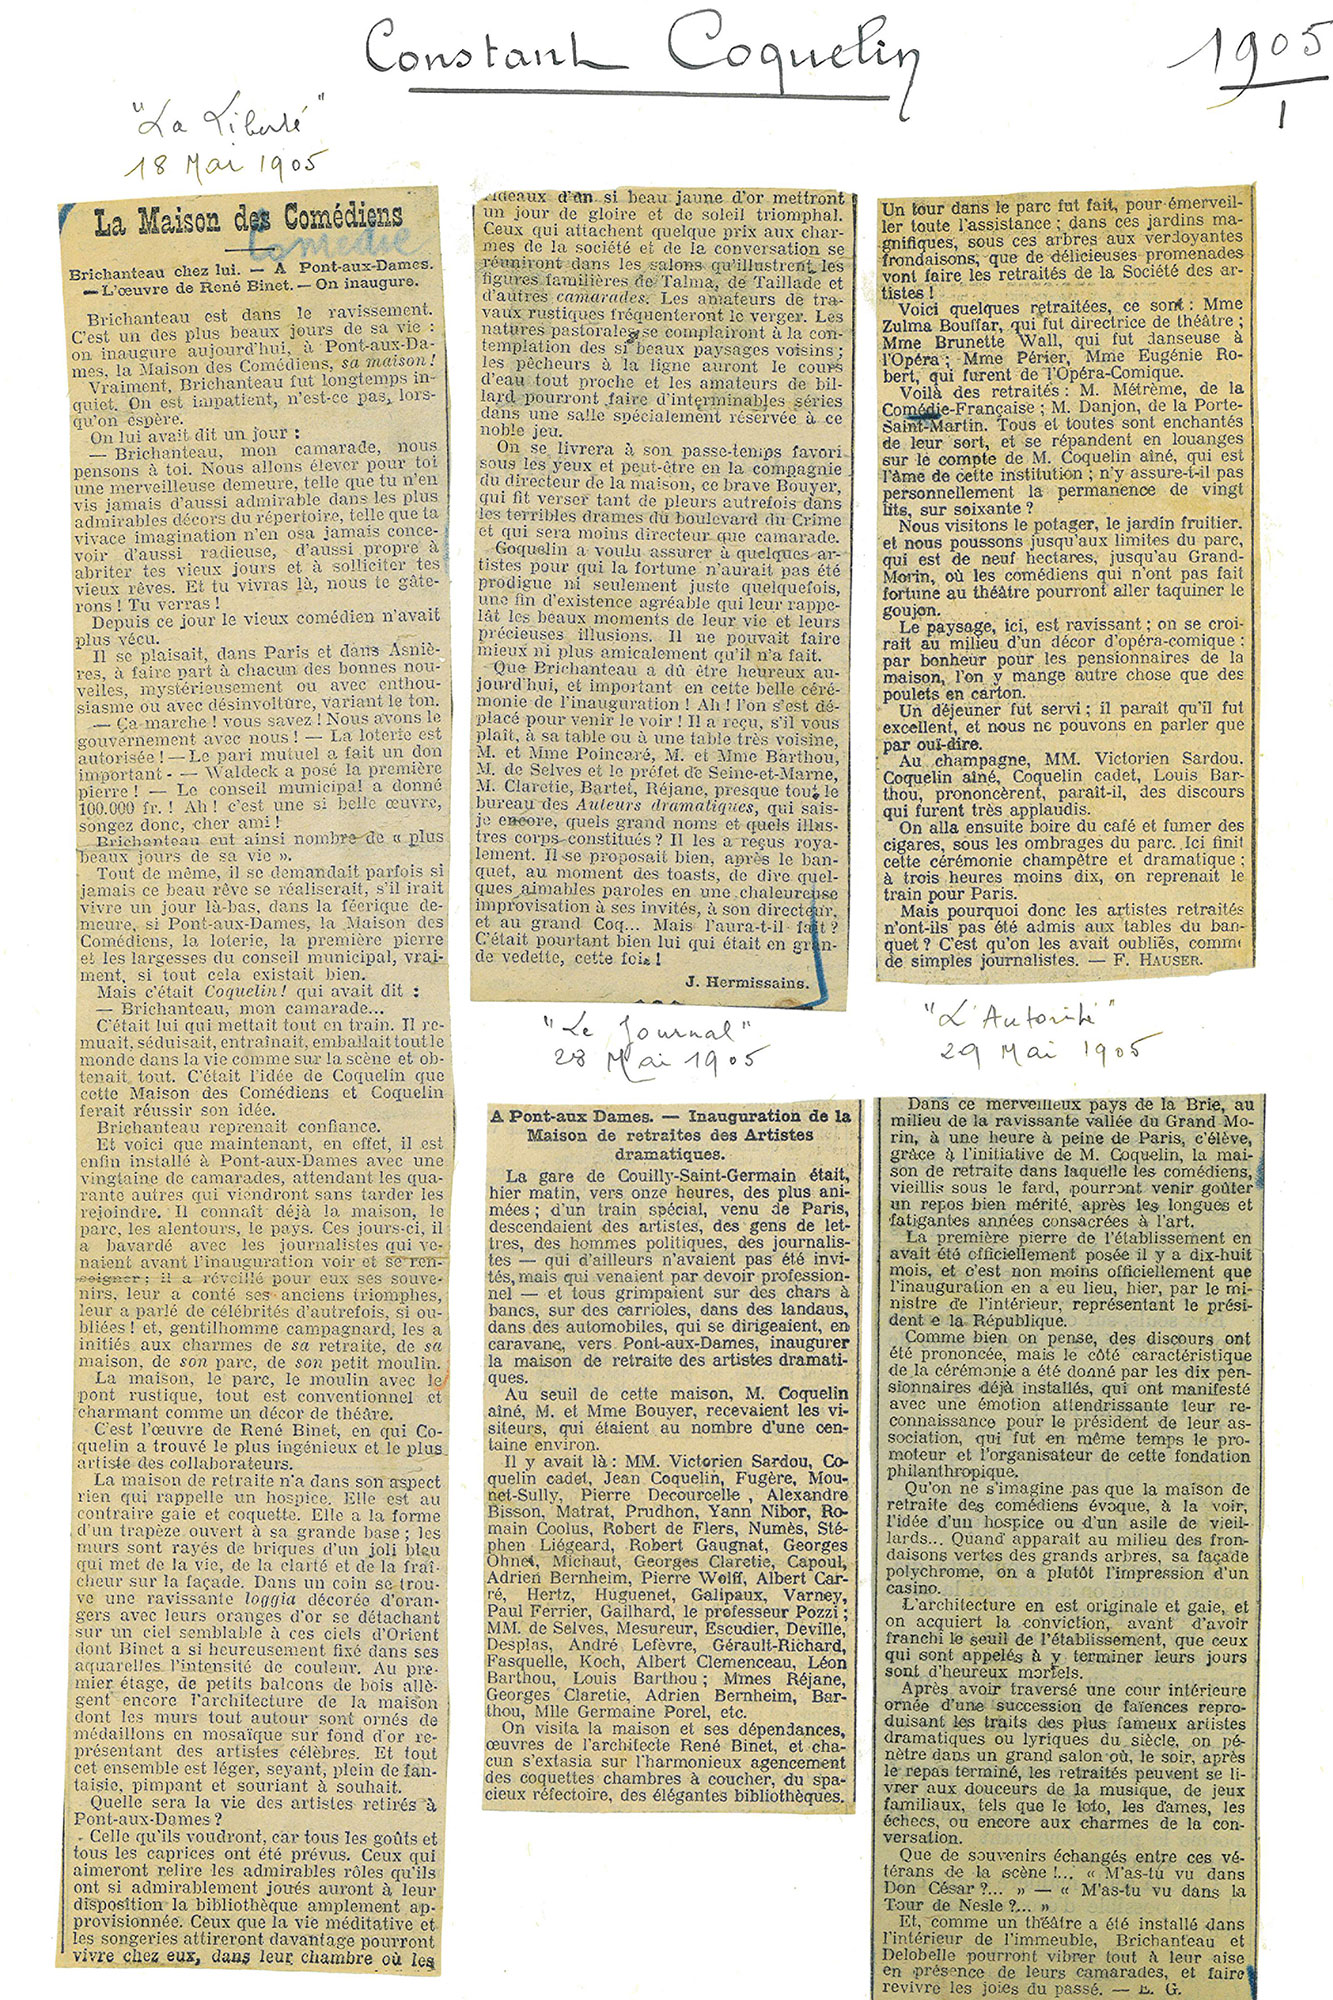 Constant Coquelin
1905
1
"La Liberté"
18 Mai 1905
La Maison des Comédiens
Comédie
Brichanteau chez lui. — A Pont-aux-Dames.
— L'œuvre de René Binet. — On inaugure.
Brichanteau est dans le ravissement.
C'est un des plus beaux jours de sa vie :
on inaugure aujourd'hui, à Pont-aux-Da-
mes, la Maison des Comédiens, sa maison !
Vraiment, Brichanteau fut longtemps in-
quiet. On est impatient, n'est-ce pas, lors-
qu'on espère.
On lui avait dit un jour :
— Brichanteau, mon camarade, nous
pensons à toi. Nous allons élever pour toi
une merveilleuse demeure, telle que tu n'en
vis jamais d'aussi admirable dans les plus
admirables décors du répertoire, telle que ta
vivace imagination n'en osa jamais conce-
voir d'aussi radieuse, d'aussi propre à
abriter tes vieux jours et à solliciter tes
vieux rêves. Et tu vivras là, nous te gâte-
rons ! Tu verras !
Depuis ce jour le vieux comédien n'avait
plus vécu.
Il se plaisait, dans Paris et dans Asniè-
res, à faire part à chacun des bonnes nou-
velles, mystérieusement ou avec enthou-
siasme ou avec désinvolture, variant le ton.
— Ça marche ! vous savez ! Nous avons le
gouvernement avec nous ! — La loterie est
autorisée ! — Le pari mutuel a fait un don
important - — Waldeck a posé la première
pierre ! — Le conseil municipal a donné
100.000 fr. ! Ah ! c'est une si belle œuvre,
songez donc, cher ami !
Brichanteau eut ainsi nombre de « plus
beaux jours de sa vie ».
Tout de même, il se demandait parfois si
jamais ce beau rêve se réaliserait, s'il irait
vivre un jour là-bas, dans la féerique de-
meure, si Pont-aux-Dames, la Maison des
Comédiens, la loterie, la première pierre
et les largesses du conseil municipal, vrai-
ment, si tout cela existait bien.
Mais c'était Coquelin ! qui avait dit :
— Brichanteau, mon camarade...
C'était lui qui mettait tout en train. Il re-
muait, séduisait, entraînait, emballait tout le
monde dans la vie comme sur la scène et ob-
tenait tout. C'était l'idée de Coquelin que
cette Maison des Comédiens et Coquelin
ferait réussir son idée.
Brichanteau reprenait confiance.
Et voici que maintenant, en effet, il est
enfin installé à Pont-aux-Dames avec une
vingtaine de camarades, attendant les qua-
rante autres qui viendront sans tarder les
rejoindre. Il connaît déjà la maison, le
parc, les alentours, le pays. Ces jours-ci, il
a bavardé avec les journalistes qui ve-
naient avant l'inauguration voir et se ren-
seigner ; il a réveillé pour eux ses souve-
nirs, leur a conté ses anciens triomphes,
leur a parlé de célébrités d'autrefois, si ou-
bliées ! et, gentilhomme campagnard, les a
initiés aux charmes de sa retraite, de sa
maison, de son parc, de son petit moulin.
La maison, le parc, le moulin avec le
pont rustique, tout est conventionnel et
charmant comme un décor de théâtre.
C'est l'œuvre de René Binet, en qui Co-
quelin a trouvé le plus ingénieux et le plus
artiste des collaborateurs.
La maison de retraite n'a dans son aspect
rien qui rappelle un hospice. Elle est au
contraire gaie et coquette. Elle a la forme
d'un trapèze ouvert à sa grande base ; les
murs sont rayés de briques d'un joli bleu
qui met de la vie, de la clarté et de la fraî-
cheur sur la façade. Dans un coin se trou-
ve une ravissante loggia décorée d'oran-
gers avec leurs oranges d'or se détachant
sur un ciel semblable à ces ciels d'Orient
dont Binet a si heureusement fixé dans ses
aquarelles l'intensité de couleur. Au pre-
mier étage, de petits balcons de bois allè-
gent encore l'architecture de la maison
dont les murs tout autour sont ornés de
médaillons en mosaïque sur fond d'or re-
présentant des artistes célèbres. Et tout
cet ensemble est léger, seyant, plein de fan-
taisie, pimpant et souriant à souhait.
Quelle sera la vie des artistes retirés à
Pont-aux-Dames ?
- Celle qu'ils voudront, car tous les goûts et
tous les caprices ont été prévus. Ceux qui
aimeront relire les admirables rôles qu'ils
ont si admirablement joués auront à leur
disposition la bibliothèque amplement ap-
provisionnée. Ceux que la vie méditative et
les songeries attireront davantage pourront
vivre chez eux, dans leur chambre où les
rideaux d'un si beau jaune d'or mettront
un jour de gloire et de soleil triomphal.
Ceux qui attachent quelque prix aux char-
mes de la société et de la conversation se
réuniront dans les salons qu'illustrent les
figures familières de Talma, de Taillade et
d'autres camarades. Les amateurs de tra-
vaux rustiques fréquenteront le verger. Les
natures pastorales se complairont à la con-
templation des si beaux paysages voisins ;
les pêcheurs à la ligne auront le cours
d'eau tout proche et les amateurs de bil-
lard pourront faire d'interminables séries
dans une salle spécialement réservée à ce
noble jeu.
On se livrera à son passe-temps favori
sous les yeux et peut-être en la compagnie
du directeur de la maison, ce brave Bouyer,
qui fit verser tant de pleurs autrefois dans
les terribles drames du boulevard du Crime
et qui sera moins directeur que camarade.
Coquelin a voulu assurer à quelques ar-
tistes pour qui la fortune n'aurait pas été
prodigue ni seulement juste quelquefois,
une fin d'existence agréable qui leur rappe-
lât les beaux moments de leur vie et leurs
précieuses illusions. Il ne pouvait faire
mieux ni plus amicalement qu'il n'a fait.
Que Brichanteau a dû être heureux au-
jourd'hui, et important en cette belle céré-
monie de l'inauguration ! Ah ! l'on s'est dé-
placé pour venir le voir ! Il a reçu, s'il vous
plaît, à sa table ou à une table très voisine,
M. et Mme Poincaré, M. et Mme Barthou,
M. de Selves et le préfet de Seine-et-Marne,
M. Claretie, Bartet, Réjane, presque tout le
bureau des Auteurs dramatiques, qui sais-
je encore, quels grand noms et quels illus-
tres corps constitués ? Il les a reçus roya-
lement. Il se proposait bien, après le ban-
quet, au moment des toasts, de dire quel-
ques aimables paroles en une chaleureuse
improvisation à ses invités, à son directeur,
et au grand Coq... Mais l'aura-t-il fait ?
C'était pourtant bien lui qui était en gran-
de vedette, cette fois !
J. Hermissains.
"Le Journal"
28 Mai 1905
A Pont-aux Dames. — Inauguration de la
Maison de retraites des Artistes
dramatiques.
La gare de Couilly-Saint-Germain était,
hier matin, vers onze heures, des plus ani-
mées ; d'un train spécial, venu de Paris,
descendaient des artistes, des gens de let-
tres, des hommes politiques, des journalis-
tes — qui d'ailleurs n'avaient pas été invi-
tés, mais qui venaient par devoir profession-
nel — et tous grimpaient sur des chars à
bancs, sur des carrioles, dans des landaus,
dans des automobiles, qui se dirigeaient, en
caravane, vers Pont-aux-Dames, inaugurer
la maison de retraite des artistes dramati-
ques.
Au seuil de cette maison, M. Coquelin
aîné, M. et Mme Bouyer, recevaient les vi-
siteurs, qui étaient au nombre d'une cen-
taine environ.
Il y avait là : MM. Victorien Sardou, Co-
quelin cadet, Jean Coquelin, Fugère, Mou-
net-Sully, Pierre Decourcelle, Alexandre
Bisson, Matrat, Prudhon, Yann Nibor, Ro-
main Coolus, Robert de Flers, Numès, Sté-
phen Liégeard, Robert Gaugnat, Georges
Ohnet, Michaut, Georges Claretie, Capoul,
Adrien Bernheim, Pierre Wolff, Albert Car-
ré, Hertz, Huguenet, Galipaux, Varney,
Paul Ferrier, Gailhard, le professeur Pozzi ;
MM. de Selves, Mesureur, Escudier, Deville,
Desplas, André Lefèvre, Gérault-Richard,
Fasquelle, Koch, Albert Clemenceau, Léon
Barthou, Louis Barthou ; Mmes Réjane,
Georges Claretie, Adrien Bernheim, Bar-
thou, Mlle Germaine Porel, etc.
On visita la maison et ses dépendances,
œuvres de l'architecte René Binet, et cha-
cun s'extasia sur l'harmonieux agencement
des coquettes chambres à coucher, du spa-
cieux réfectoire, des élégantes bibliothèques.
Un tour dans le parc fut fait, pour émerveil-
ler toute l'assistance ; dans ces jardins ma-
gnifiques, sous ces arbres aux verdoyantes
frondaisons, que de délicieuses promenades
vont faire les retraités de la Société des ar-
tistes !
Voici quelques retraitées, ce sont : Mme
Zulma Bouffar, qui fut directrice de théâtre ;
Mme Brunette Wall, qui fut danseuse à
l'Opéra ; Mme Périer, Mme Eugénie Ro-
bert, qui furent de l'Opéra-Comique.
Voilà des retraités : M. Métrème, de la
Comédie-Française ; M. Danjon, de la Porte-
Saint-Martin. Tous et toutes sont enchantés
de leur sort, et se répandent en louanges
sur le compte de M. Coquelin aîné, qui est
l'âme de cette institution ; n'y assure-t-il pas
personnellement la permanence de vingt
lits, sur soixante ?
Nous visitons le potager, le jardin fruitier,
et nous poussons jusqu'aux limites du parc,
qui est de neuf hectares, jusqu'au Grand-
Morin, où les comédiens qui n'ont pas fait
fortune au théâtre pourront aller taquiner le
goujon.
Le paysage, ici, est ravissant ; on se croi-
rait au milieu d'un décor d'opéra-comique ;
par bonheur pour les pensionnaires de la
maison, l'on y mange autre chose que des
poulets en carton.
Un déjeuner fut servi ; il paraît qu'il fut
excellent, et nous ne pouvons en parler que
par ouï-dire.
Au champagne, MM. Victorien Sardou.
Coquelin aîné, Coquelin cadet, Louis Bar-
thou, prononcèrent, paraît-il, des discours
qui furent très applaudis.
On alla ensuite boire du café et fumer des
cigares, sous les ombrages du parc. Ici finit
cette cérémonie champêtre et dramatique ;
à trois heures moins dix, on reprenait le
train pour Paris.
Mais pourquoi donc les artistes retraités
n'ont-ils pas été admis aux tables du ban-
quet ? C'est qu'on les avait oubliés, comme
de simples journalistes. — F. HAUSER.
"L'Autorité"
29 Mai 1905
Dans ce merveilleux pays de la Brie, au
milieu de la ravissante vallée du Grand Mo-
rin, à une heure à peine de Paris, c'élève,
grâce à l'initiative de M. Coquelin, la mai-
son de retraite dans laquelle les comédiens,
vieillis sous le fard, pourront venir goûter
un repos bien mérité, après les longues et
fatigantes années consacrées à l'art.
La première pierre de l'établissement en
avait été officiellement posée il y a dix-huit
mois, et c'est non moins officiellement que
l'inauguration en a eu lieu, hier, par le mi-
nistre de l'intérieur, représentant le prési-
dent e la République.
Comme bien on pense, des discours ont
été prononcée, mais le côté caractéristique
de la cérémonie a été donné par les dix pen-
sionnaires déjà installés, qui ont manifesté
avec une émotion attendrissante leur re-
connaissance pour le président de leur as-
sociation, qui fut en même temps le pro-
moteur et l'organisateur de cette fondation
philanthropique.
Qu'on ne s'imagine pas que la maison de
retraite des comédiens évoque, à la voir,
l'idée d'un hospice ou d'un asile de vieil-
lards... Quand apparaît au milieu des fron-
daisons vertes des grands arbres, sa façade
polychrome, on a plutôt l'impression d'un
casino.
L'architecture en est originale et gaie, et
on acquiert la conviction, avant d'avoir
franchi le seuil de l'établissement, que ceux
qui sont appelés à y terminer leurs jours
sont d'heureux mortels.
Après avoir traversé une cour intérieure
ornée d'une succession de faïences repro-
duisant les traits des plus fameux artistes
dramatiques ou lyriques du siècle, on pé-
nètre dans un grand salon où, le soir, après
le repas terminé, les retraités peuvent se li-
vrer aux douceurs de la musique, de jeux
familiaux, tels que le loto, les dames, les
échecs, ou encore aux charmes de la con-
versation.
Que de souvenirs échangés entre ces vé-
térans de la scène !... « M'as-tu vu dans
Don César ?... » — « M'as-tu vu dans la
Tour de Nesle ?... »
Et, comme un théâtre a été installé dans
l'intérieur de l'immeuble, Brichanteau et
Delobelle pourront vibrer tout à leur aise
en présence de leurs camarades, et faire
revivre les joies du passé. — E. G.